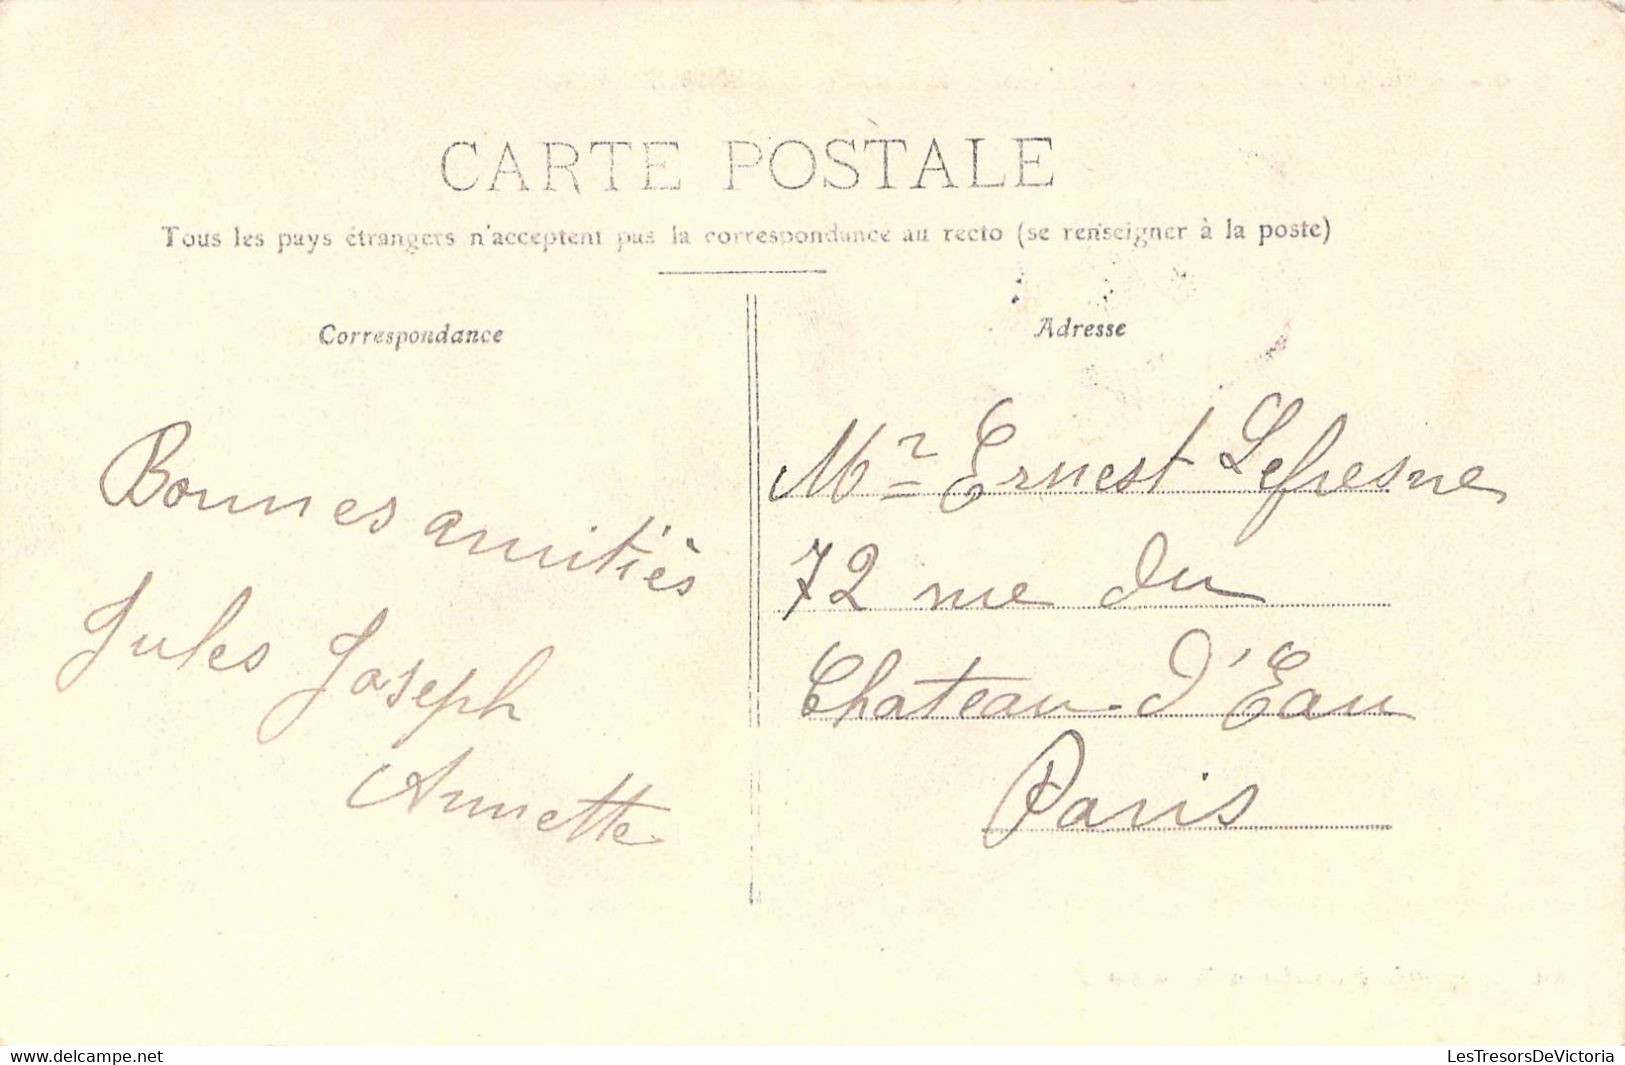 CARTE POSTALE
Tous les pays étrangers n'acceptent pas la correspondance au recto (se renseigner à la poste)
Correspondance
Bonnes amitiés
Jules Joseph
Annette
Adresse
Mr Ernest Lefresne
72 rue du
Chateau-d'Eau
Paris
www.delcampe.net
LesTresorsDeVictoria